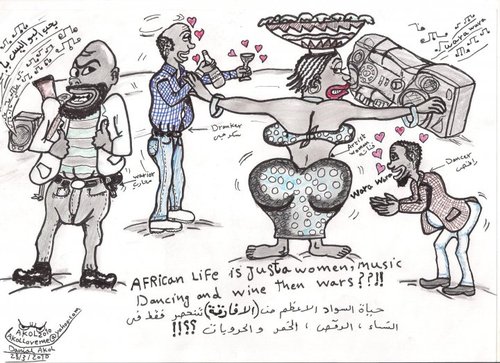 wara wara
Drunker
سكرجي
warrior
محارب
Artist
woman
فنانة
Dancer
راقص
Wara Wara
AFRican Life is Justa women, music
Dancing and wine then wars??!!
حياة السواد الاعظم من (الافارقة) تنحصر فقط في
النساء ، الرقص ، الخمر والحروبات ؟؟!!
AKOL2010
Akolloverme@yahoo.com
Danial Akol
28/3/2010